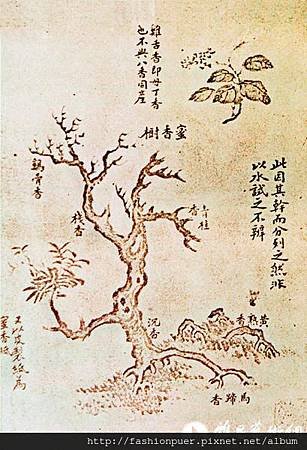 雞舌香即母丁香
也不與八香同立產
蜜香樹
此因其幹而分別之然非
以水試之不辨
雞骨香
青桂
香
棧香
黃熟香
沉香
馬蹄香
蜜香紙
http://fashionpuer.pixnet.net/album